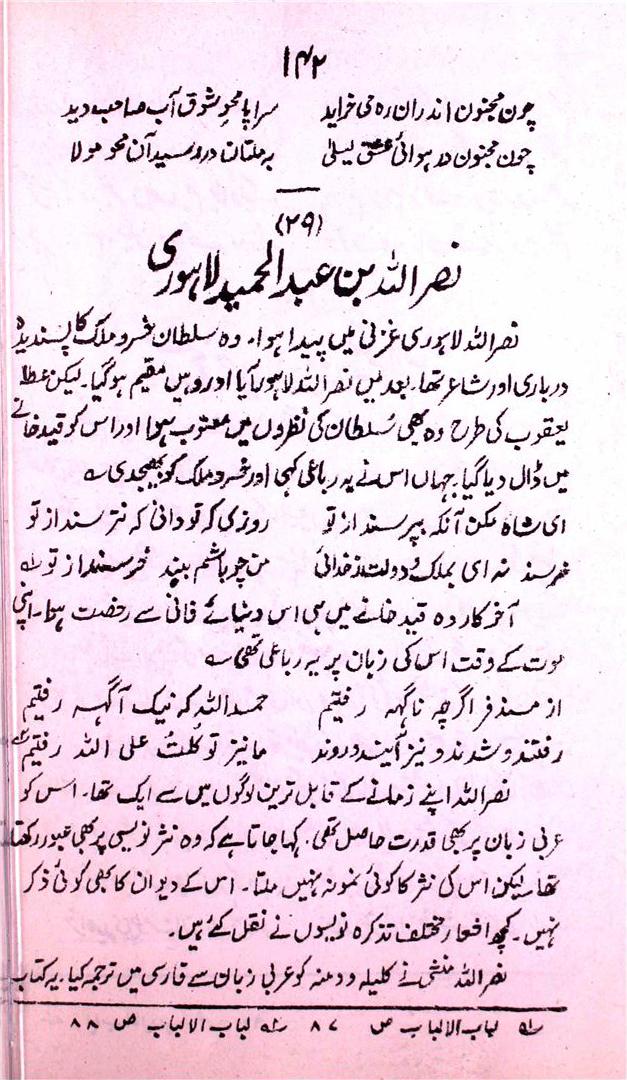 ۱۴۲
چون مجنون اندران رہ می خرامید سراپا محو شوق آب صاحب دید
چون مجنون در هوائ عشق لیلیٰ بہ ملتان در رسید آن محو مولا
(۲۹)
نصر اللہ بن عبد الحمید لاہوری
نصر اللہ لاہوری غزنی میں پیدا ہوا۔ وہ سلطان خسرو ملک کا پسندیدہ
درباری اور شاعر تھا۔ بعد میں نصر اللہ لاہور آیا اور وہیں مقیم ہوگیا۔ لیکن عطا
یعقوب کی طرح وہ بھی سُلطان کی نظروں میں معتوب ہوا اور اس کو قید خانے
میں ڈال دیا گیا۔ جہاں اس نے یہ رباعی کہی اور خسرو ملک کو بھیجدی ؎
ای شاہ مکن آنکہ بپرسند از تو روزی کہ تو دانی کہ نترسند از تو
خرسند نہ ای بملک و دولت ز خدائی من چو باشم ببند خرسند از تو ؎
آخر کار وہ قید خانے میں ہی اس دنیائے فانی سے رخصت ہوا۔ اپنی
موت کے وقت اس کی زبان پر یہ رباعی تھی ؎
از مسند فر اگرچہ ناگہہ رفتیم حمد اللہ کہ نیک آگہہ رفتیم
رفتند و شدند و نیز آیند و روند ما نیز تو کلتُ علی اللہ رفتیم
نصر اللہ اپنے زمانے کے قابل ترین لوگوں میں سے ایک تھا۔ اس کو
عربی زبان پر بھی قدرت حاصل تھی۔ کہا جاتا ہے کہ وہ نثر نویسی پر بھی عبور رکھتا
تھا لیکن اس کی نثر کا کوئی نمونہ نہیں ملتا۔ اس کے دیوان کا بھی کوئی ذکر
نہیں۔ کچھ اشعار مختلف تذکرہ نویسوں نے نقل کئے ہیں۔
نصر اللہ منشی نے کلیلہ و دمنہ کو عربی زبان سے فارسی میں ترجمہ کیا۔ یہ کتاب
لباب الالباب ص ۸۷ لباب الالباب ص ۸۸